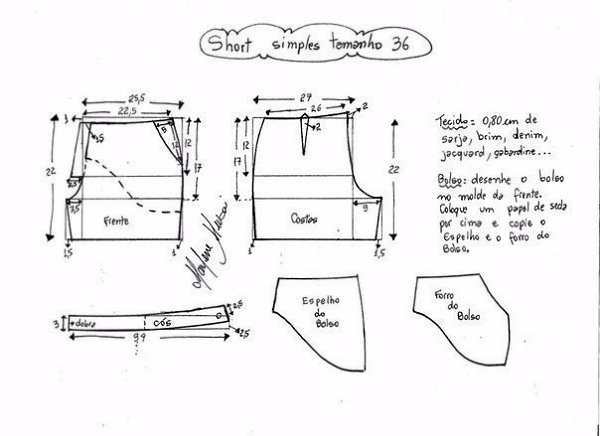 Short simples tamanho 36
25,5
22,5
3
1,5
5
12
12
17
22
2,5
3,5
Frente
1,5
1
27
26
2
2
12
17
22
9
Costas
1
1,5
Tecido: 0,80 cm de
sarja, brim, denim,
jacquard, gabardine...
Bolso: desenhe o bolso
no molde da frente.
Coloque um papel de seda
por cima e copie o
Espelho e o forro do
Bolso.
3
dobra
cós
99
2,5
2,5
Espelho
do
Bolso
Forro
do
Bolso